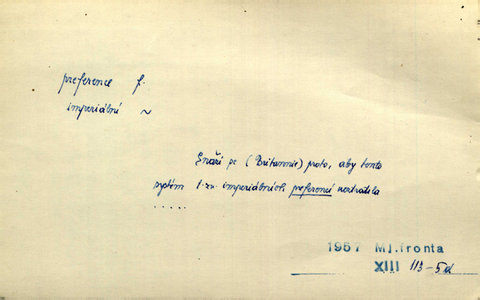 preference f.
imperiální ~
Snaží se (Britannie) proto, aby tento
systém t. zv. imperiálních preferencí neztratila
.....
1957 Ml.fronta
XIII 113-5d